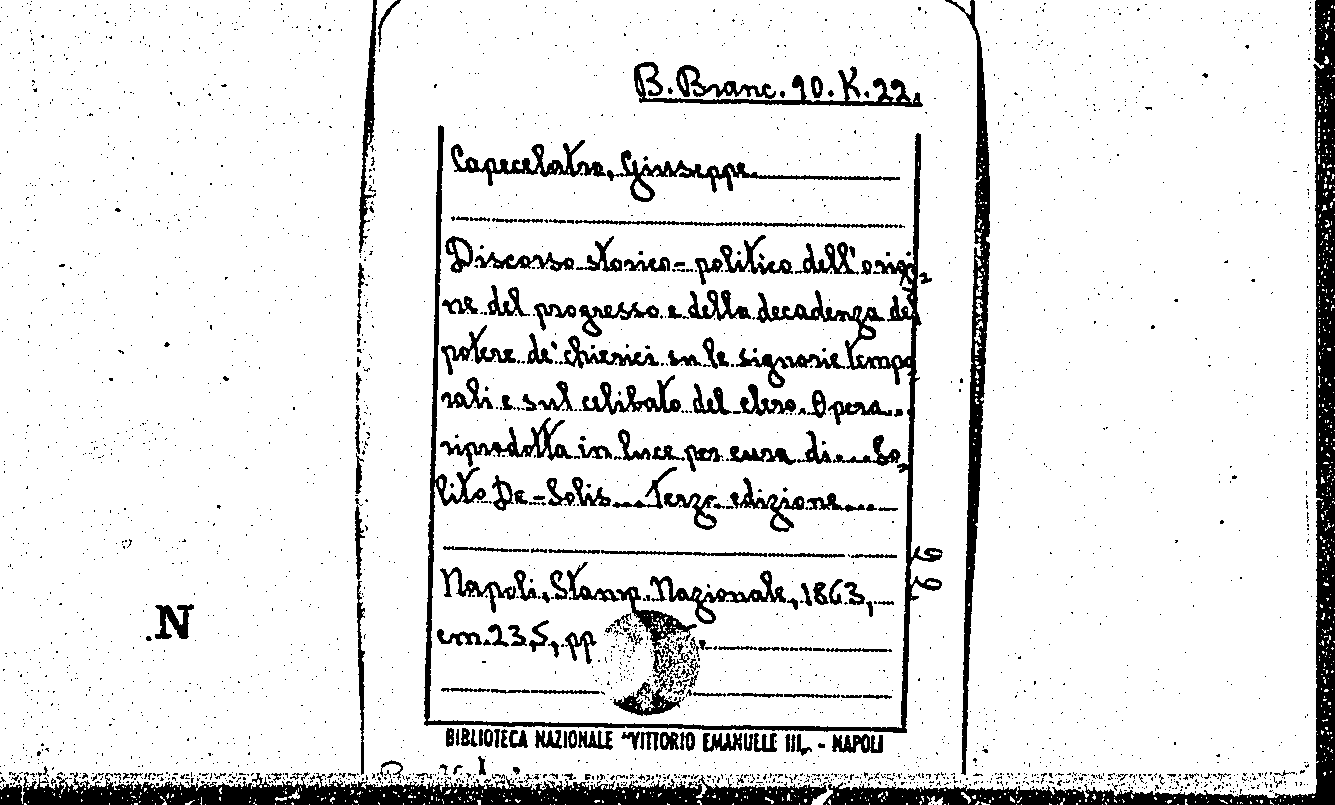 B. Branc. 90. K. 22.
Capecelatro, Giuseppe.
Discorso storico-politico dell'origi-
ne del progresso e della decadenza del
potere de' chierici su le signorie tempo
rali e sul celibato del clero. Opera..
riprodotta in luce per cura di.... So,
lito De-Solis... Terza edizione....
Napoli, Stamp. Nazionale, 1863,
cm. 23,5, pp
BIBLIOTECA NAZIONALE "VITTORIO EMANUELE III„ - NAPOLI
.N